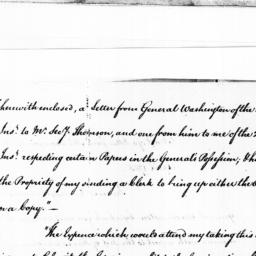 herewith enclosed, a Letter from General Washington of the
Inst. to Mr. Secy. Thomson, and one from him to me of the
Inst. respecting certain Papers in the Generals Possession, &
the Propriety of my sending a Clerk to bring up either the
n a Copy." —
"The Expence which would attend my taking this